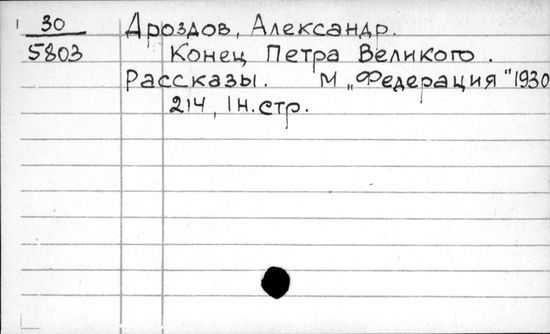 30 Дроздов, Александр.
5803 Конец Петра Великого.
Рассказы. М „Федерация" 1930
214, 1 н. стр.